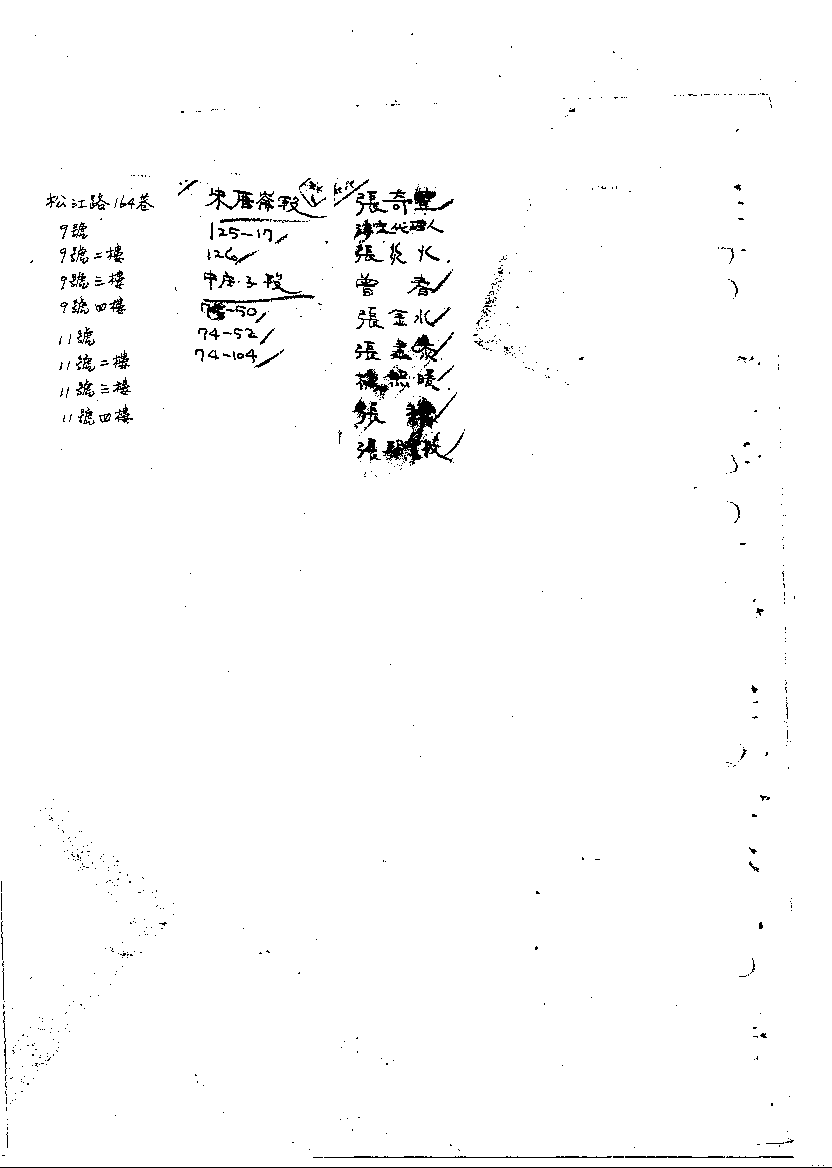 松江路164巷
9號
9號二樓
9號三樓
9號四樓
11號
11號二樓
11號三樓
11號四樓
朱厝崙段
125-17
126
中庄子段
-50
74-52
74-104
張奇
法定代理人
張炎火
曾 春
張金水
張孟
張
張